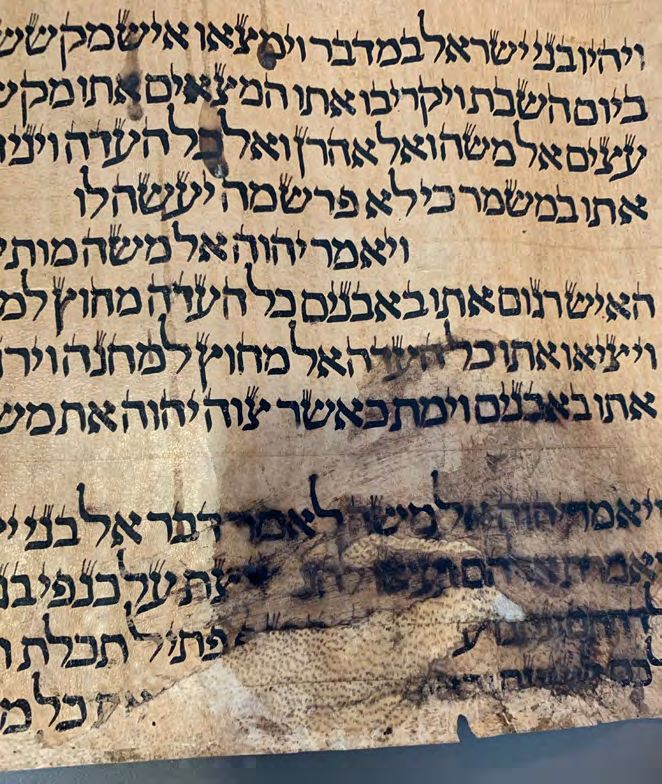 ויהיו בני ישראל במדבר וימצאו איש מקשש
ביום השבת ויקריבו אתו המצאים אתו מקש
עצים אל משה ואל אהרן ואל כל העדה ויני
אתו במשמר כי לא פרש מה יעשה לו
ויאמר יהוה אל משה מות י
האיש רגום אתו באבנים כל העדה מחוץ למ
ויציאו אתו כל העדה אל מחוץ למחנה ויר
אתו באבנים וימת כאשר צוה יהוה את מש
ויאמר יהוה אל משה לאמר דבר אל בני י
ואמרת אלהם ועשו להם ציצת על כנפי בג
לדרתם ונתנו ע פתיל תכלת ו
לכם לציצת את כל מ